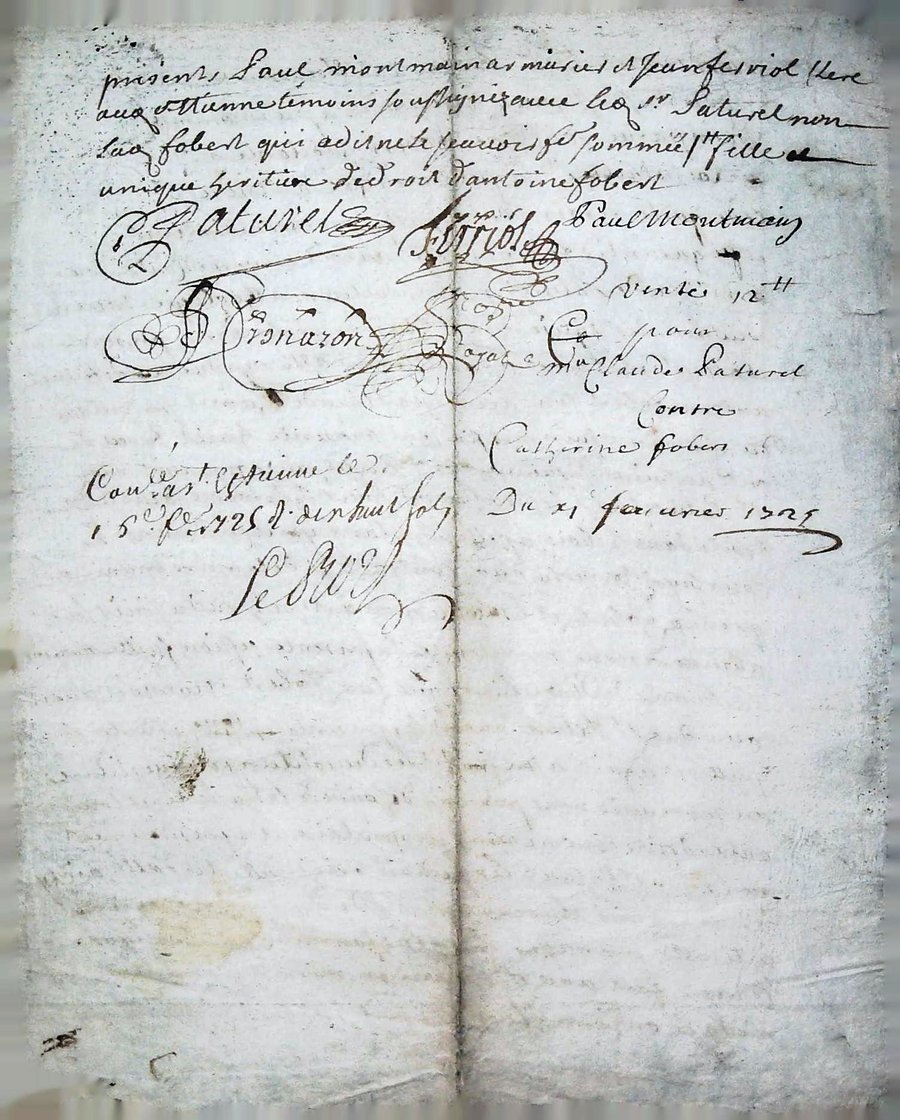 presents Paul montmain armurier et Jean ferriol clerc
aud st Etienne temoins soussignez avec led sr Paturel non
lad fobert qui a dit ne le scavoir fe sommée st fille et
unique heritiere de droit d'antoine fobert
Paturel
ferriol
Paul Montmain
Vente 12tt
pour
Me Claude Paturel
Contre
Catherine fobert
Du xi feuvrier 1725
Conlé a st Etienne le
16e fe 1725 R. dix huit sols